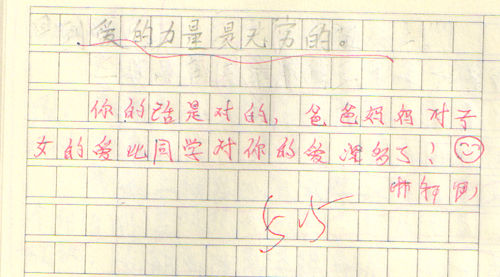 爱的力量是无穷的。
你的话是对的，爸爸妈妈对子
女的爱比同学对你的爱深多了！